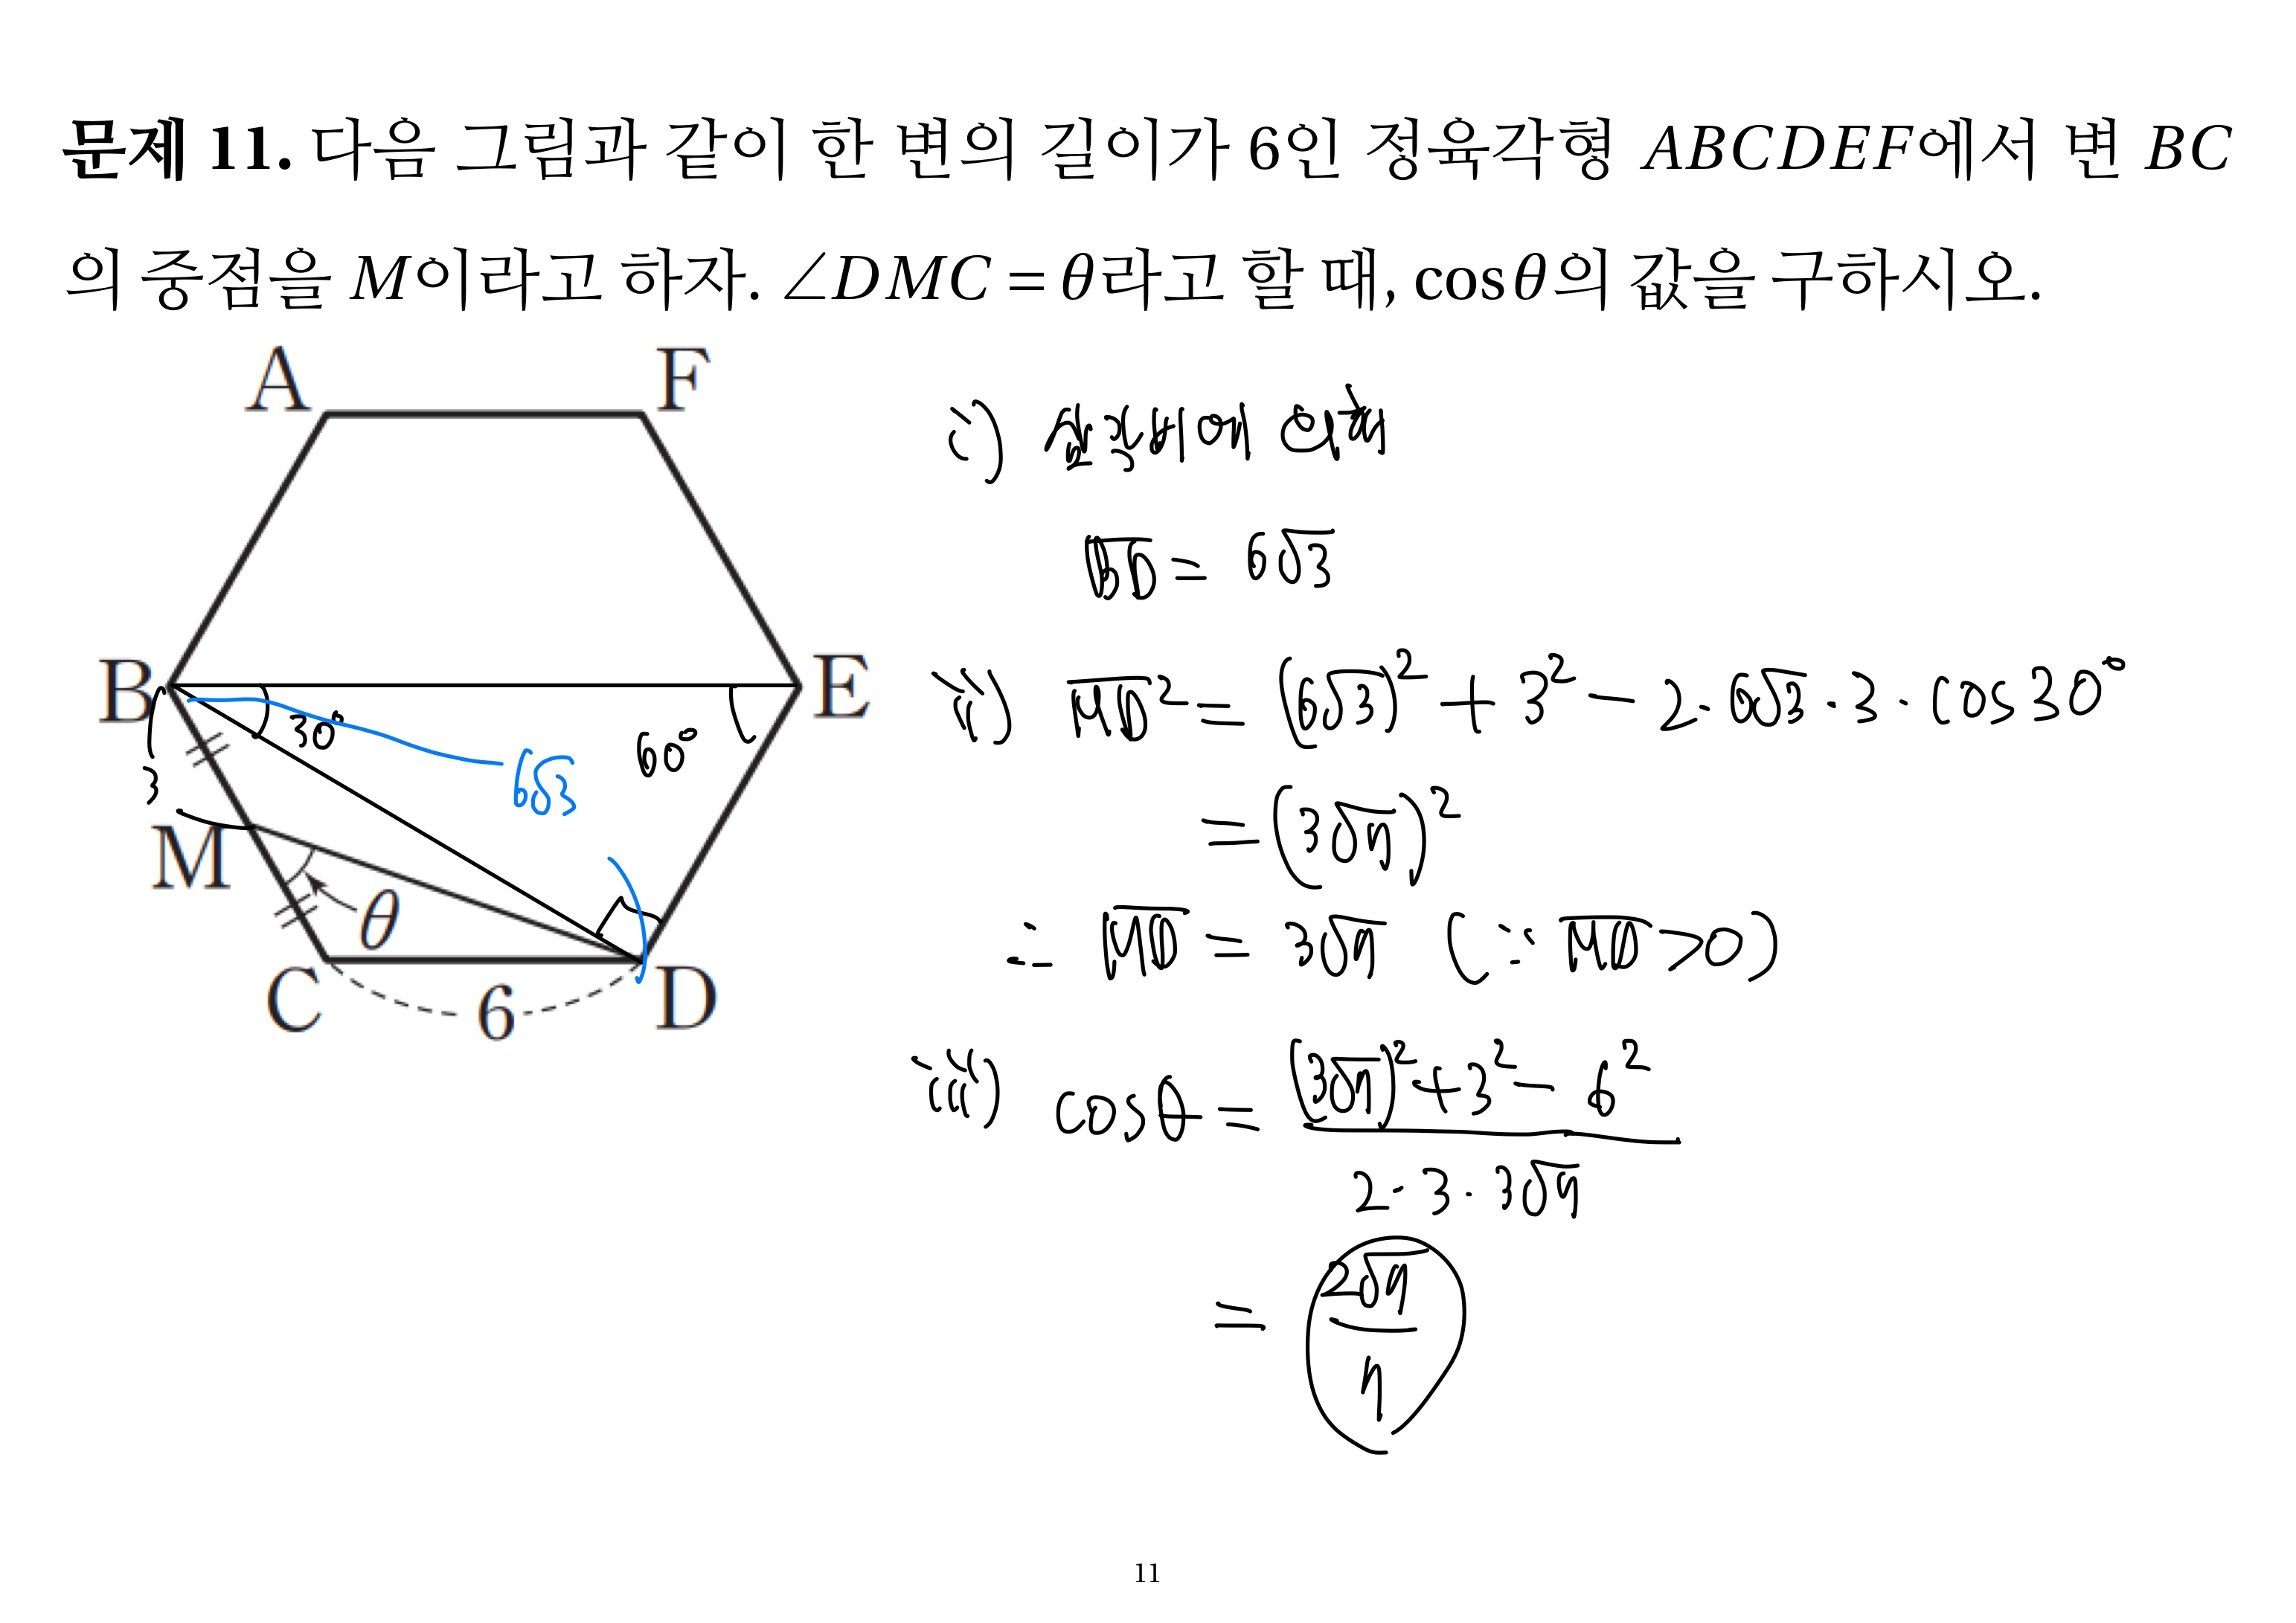 문제 11. 다음 그림과 같이 한 변의 길이가 6인 정육각형 ABCDEF에서 변 BC
의 중점을 M이라고 하자. ∠DMC = θ라고 할 때, cosθ의 값을 구하시오.
A F
B E
30° 60°
6√3
3
M
θ
C D
6
i) 삼각비에 의해
BD = 6√3
ii) MD² = (6√3)² + 3² - 2·6√3·3·cos30°
= (3√7)²
∴ MD = 3√7 (∵ MD > 0)
iii) cosθ = ((3√7)² + 3² - 6²) / (2·3·3√7)
= 2√7 / 7
11